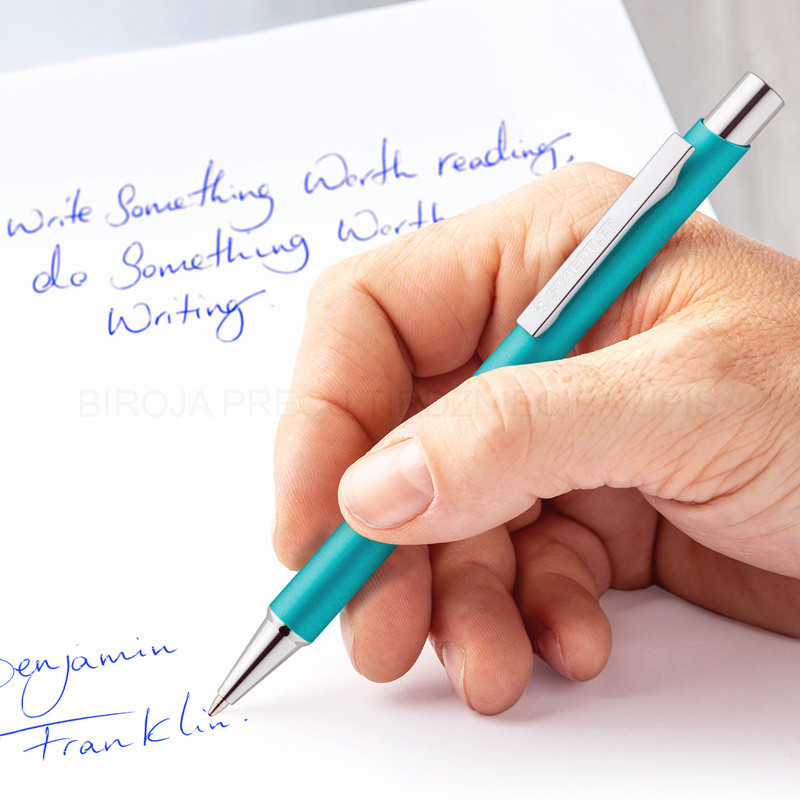 Write Something Worth reading,
do Something Worth
Writing.
STAEDTLER
Benjamin
Franklin.